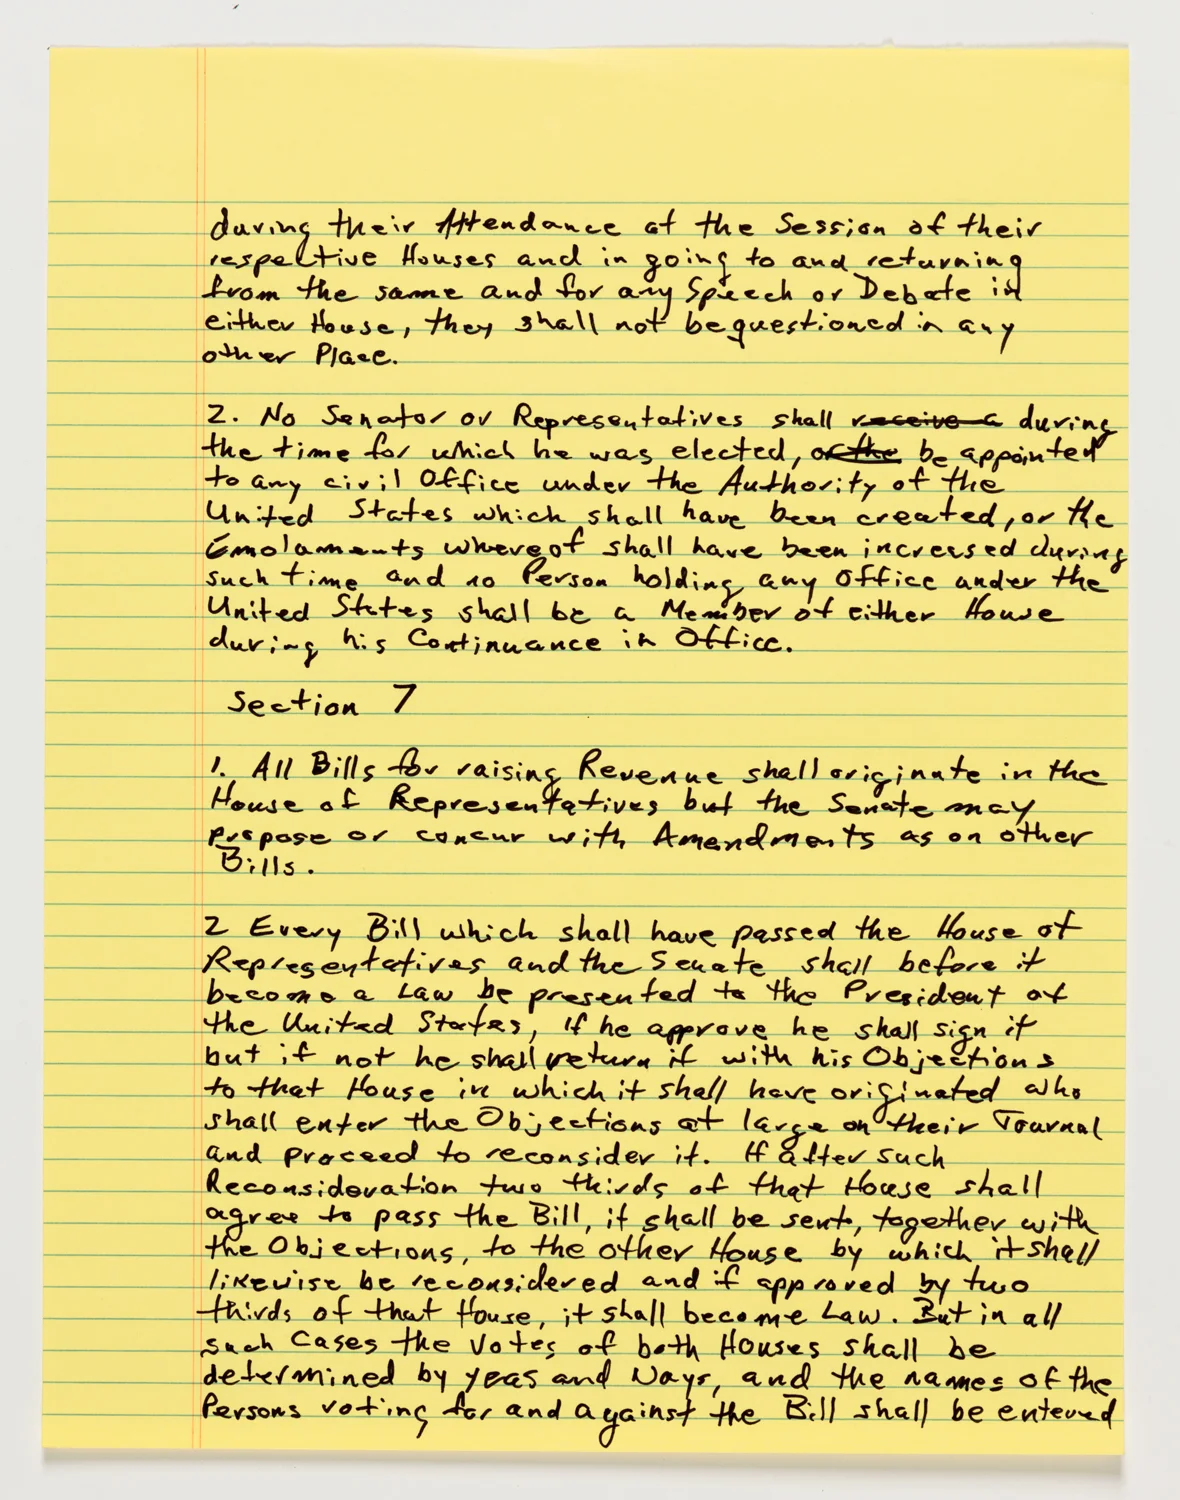 during their Attendance at the Session of their
respective Houses and in going to and returning
from the same and for any Speech or Debate in
either House, they shall not be questioned in any
other Place.
2. No Senator or Representatives shall ~~receive a~~ during
the time for which he was elected, ~~or the~~ be appointed
to any civil Office under the Authority of the
United States which shall have been created, or the
Emolaments whereof shall have been increased during
such time and no Person holding any Office under the
United States shall be a Member of either House
during his Continuance in Office.
Section 7
1. All Bills for raising Revenue shall originate in the
House of Representatives but the Senate may
propose or concur with Amendments as on other
Bills.
2 Every Bill which shall have passed the House of
Representatives and the Senate shall before it
become a Law be presented to the President of
the United States, If he approve he shall sign it
but if not he shall return it with his Objections
to that House in which it shall have originated who
shall enter the Objections at large on their Journal
and proceed to reconsider it. If after such
Reconsideration two thirds of that House shall
agree to pass the Bill, it shall be sent, together with
the Objections, to the other House by which it shall
likewise be reconsidered and if approved by two
thirds of that House, it shall become Law. But in all
such Cases the Votes of both Houses shall be
determined by yeas and Nays, and the names of the
Persons voting for and against the Bill shall be entered